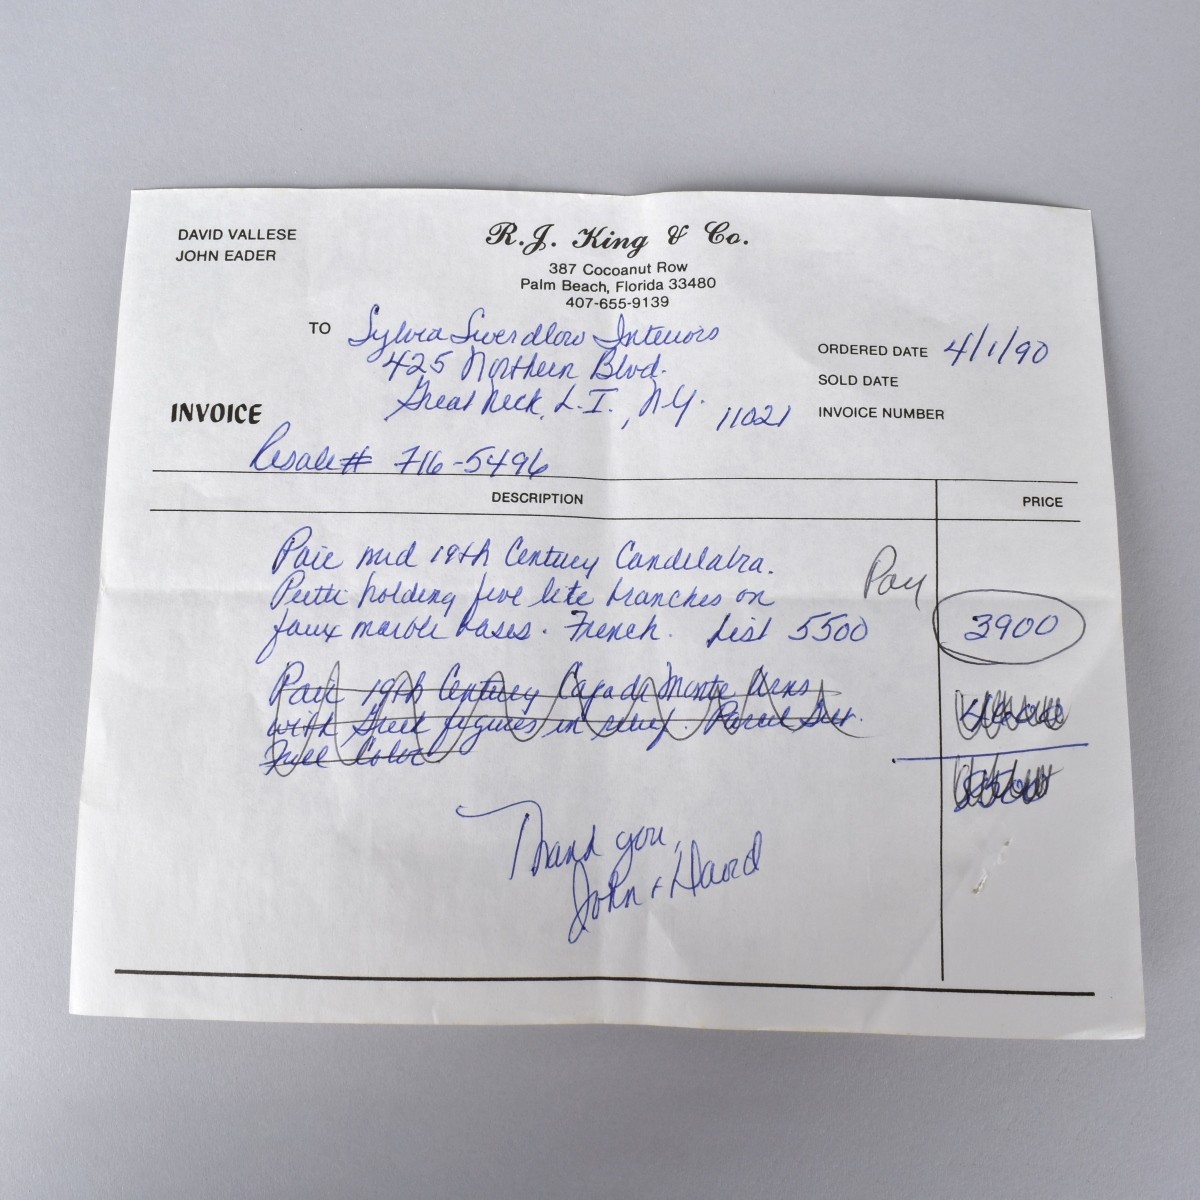 DAVID VALLESE
JOHN EADER
R.J. King & Co.
387 Cocoanut Row
Palm Beach, Florida 33480
407-655-9139
TO Sylvia Swerdlow Interiors
425 Northern Blvd.
Great Neck, L.I., N.Y. 11021
ORDERED DATE 4/1/90
SOLD DATE
INVOICE NUMBER
INVOICE
Resale# 716-5496
DESCRIPTION PRICE
Pair mid 19th Century Candelabra.
Putti holding five lite branches on
faux marble bases. French. List 5500
Pay 3900
Pair 19th Century Monte Arms
with Greek figures in relief. Parcel Gilt.
Full Color
Thank you,
John + David